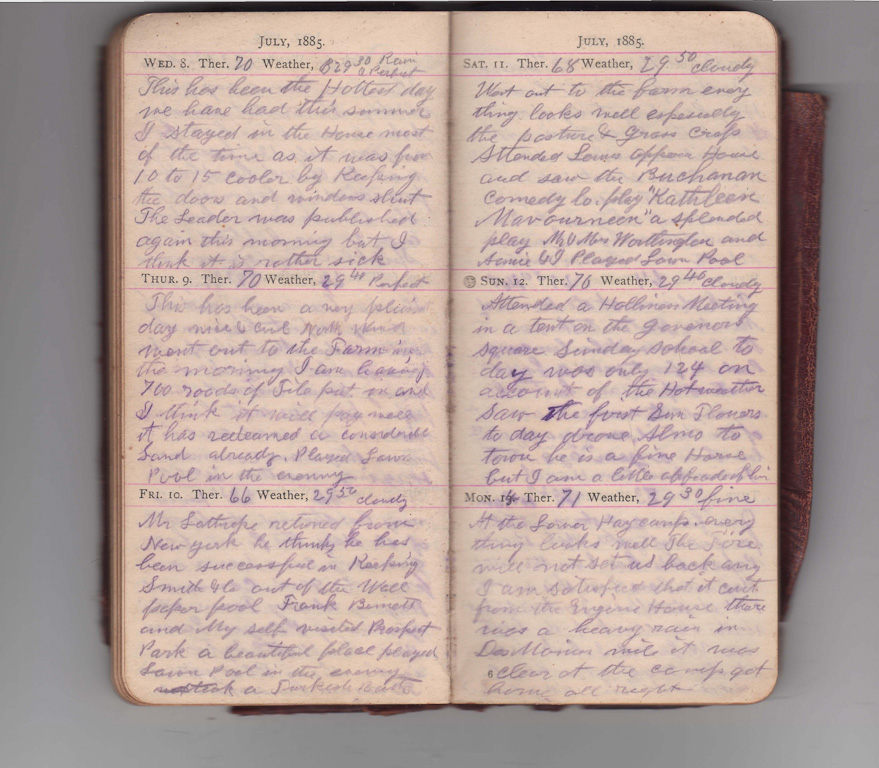 JULY, 1885.
WED. 8. Ther. 70 Weather, 29 30 Rain & Perfect
This has been the Hottest day
we have had this summer
I stayed in the House most
of the time as it was from
10 to 15 cooler by Keeping
the doors and windows shut
The Leader was published
again this morning but I
think it is rather sick
THUR. 9. Ther. 70 Weather, 29 40 Perfect
This has been a very
day nice & cool North Wind
went out to the Farm in
the morning I am having
700 roods of Tile put in and
I think it will pay well
it has redeemed a considerable
Land already. Played Lawn
Pool in the evening
FRI. 10. Ther. 66 Weather, 29 50 cloudy
Mr Lathrope retired from
New York he thinks he has
been successful in Keeping
Smith & Co out of the Wall
paper pool Frank
and My self visited Prospect
Park a beautiful place played
Lawn Pool in the evening
a Turkish Bath
JULY, 1885.
SAT. 11. Ther. 68 Weather, 29 50 cloudy
Went out to the farm every
thing looks well especially
the pasture & Grass crops
Attended Lewis opperr House
and saw the Buchanan
comedy Co. play "Kathleen
Mavourneen" a splended
play Mr & Mrs Worthington and
& I Played Lawn Pool
SUN. 12. Ther. 76 Weather, 29 40 cloudy
Attended a Holliness Meeting
in a tent on the Govenors
square Sunday school to
day was only 124 on
account of the Hot weather
Saw the first Sun Flowers
to day drove Almo to
town he is a fine Horse
but I am a little affraid of him
MON. 13. Ther. 71 Weather, 29 30 fine
At the Lower Hay camp. every
thing looks well The Fire
will not set us back any
I am satisfied that it caut
from the Engine House there
was a heavy rain in
Des Moines mic it was
6 clear at the camp got
home all right